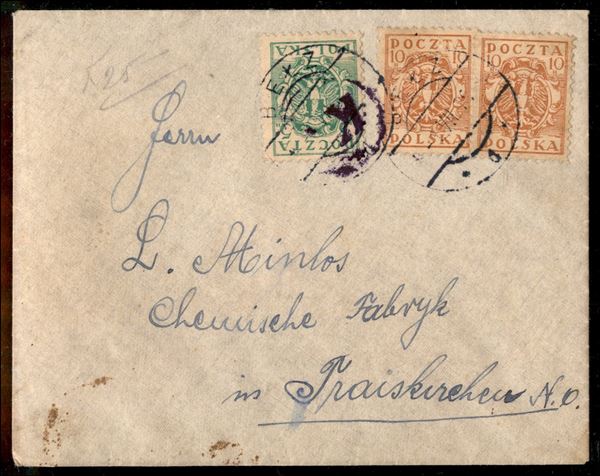 T. 25
POCZTA
POLSKA
POCZTA
10 10
POLSKA
POCZTA
10 10
POLSKA
Herrn
L. Minlos
Chemische Fabryk
in Traiskirchen N. O.